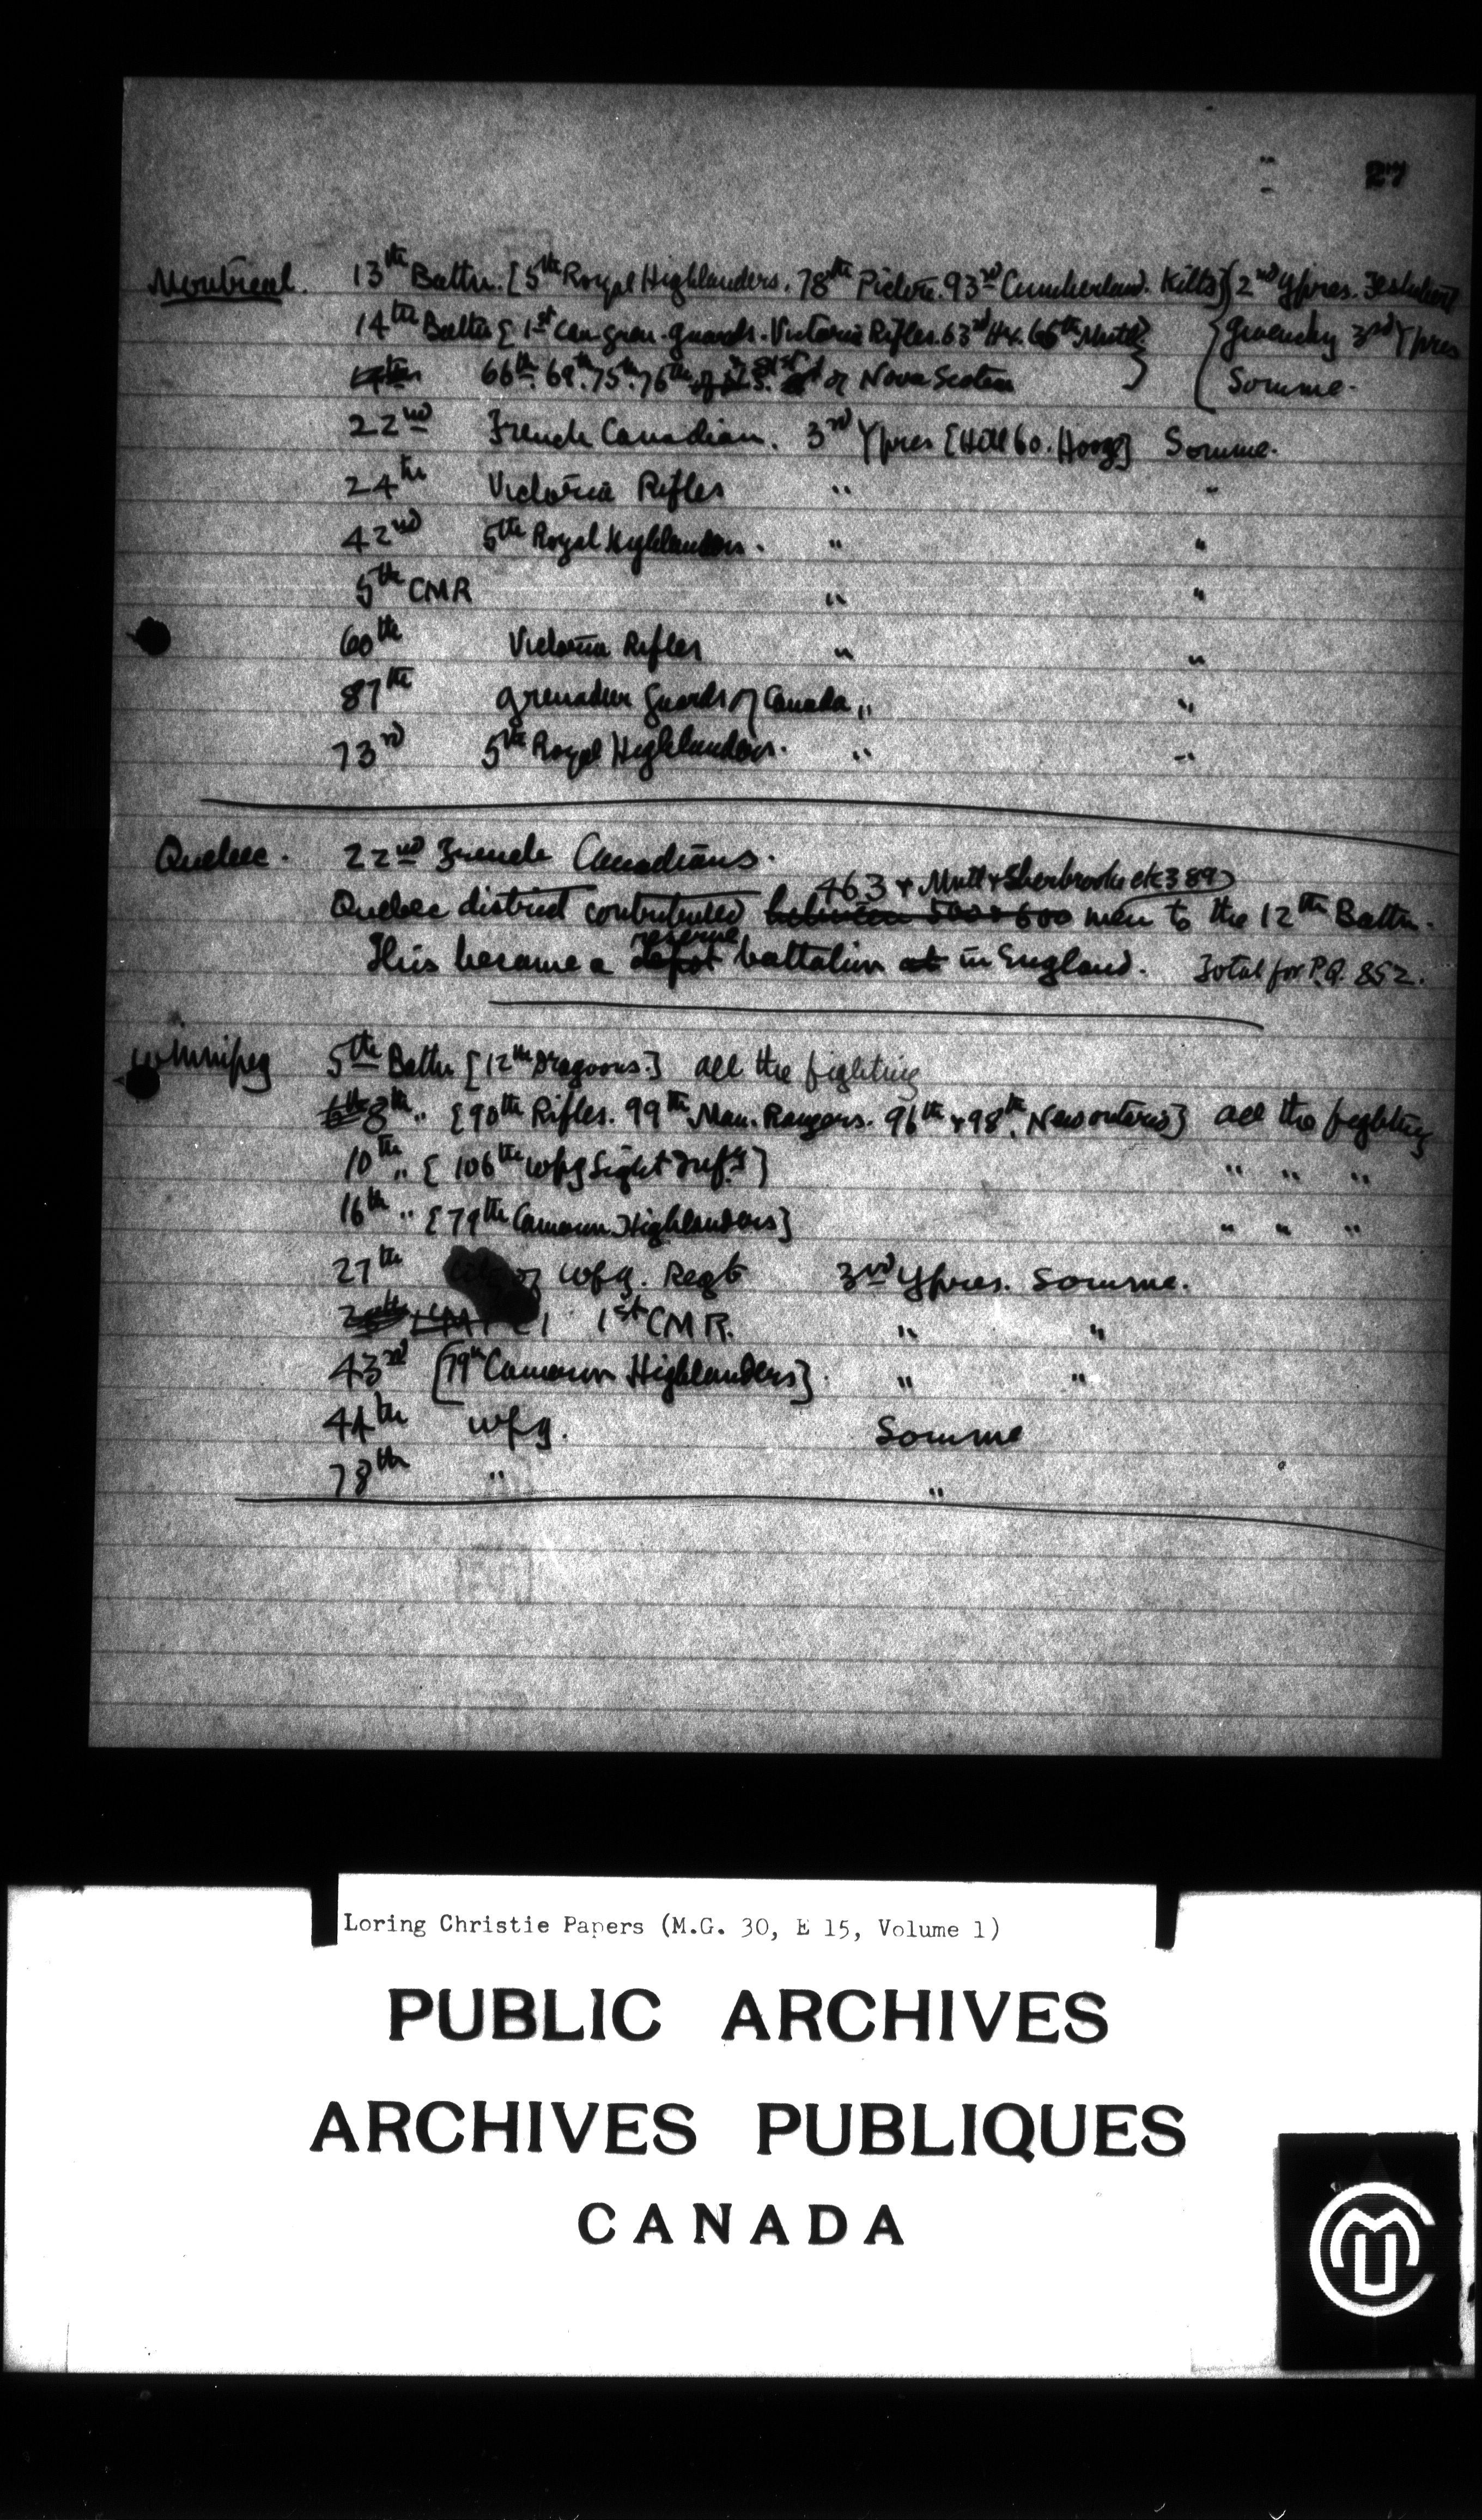 27
Montreal. 13th Battn. [5th Royal Highlanders. 78th Pictou. 93rd Cumberland. Kilts] {2nd Ypres. Festubert
14th Battn [1st Can. Gren. Guards. Victoria Rifles. 63rd Hx. 66th } Givenchy 3rd Ypres
66th. 69th. 75th. 76th of Nova Scotia } Somme.
22nd French Canadian. 3rd Ypres [Hill 60. Hooge] Somme.
24th Victoria Rifles " "
42nd 5th Royal Highlanders. " "
5th CMR " "
60th Victoria Rifles " "
87th Grenadier Guards of Canada " "
73rd 5th Royal Highlanders. " "
Quebec. 22nd French Canadians.
463 + Mntl + Sherbrooke etc 389
Quebec district contributed between 500 & 600 men to the 12th Battn.
reserve
This became a depot battalion at in England. Total for P.Q. 852.
Winnipeg 5th Battn [12th Dragoons.] all the fighting
6th 8th " [90th Rifles. 99th Man. Rangers. 96th & 98th. New Ontario] all the fighting
10th " [106th Wpg Light Infy] " " "
16th " [79th Cameron Highlanders] " " "
27th City of Wpg. Regt 3rd Ypres. Somme.
1st CMR. " "
43rd [79th Cameron Highlanders]. " "
44th Wpg. Somme
78th " "
Loring Christie Papers (M.G. 30, E 15, Volume 1)
PUBLIC ARCHIVES
ARCHIVES PUBLIQUES
CANADA